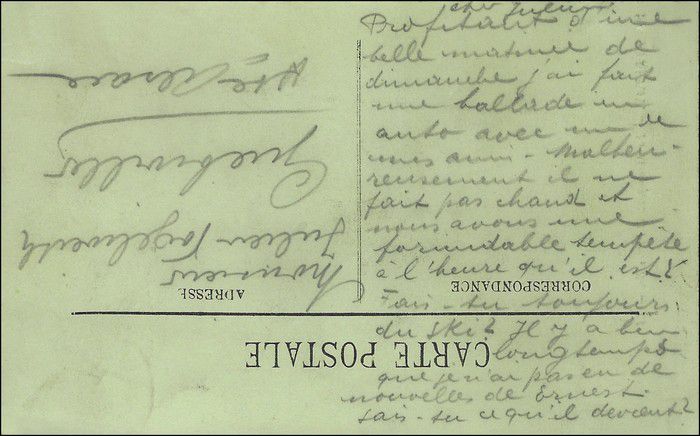 CARTE POSTALE
CORRESPONDANCE
ADRESSE
cher Julien
Profitant d'une
belle matinée de
dimanche j'ai fait
une ballade en
auto avec un de
mes ami - Malheu-
reusement il ne
fait pas chaud et
nous avons une
formidable tempête
à l'heure qu'il est!
Fais-tu toujours
du ski? Il y a bien
longtemps
que je n'ai pas eu de
nouvelles de Ernest.
Sais-tu ce qu'il devient?
Monsieur
Julien Vogelweith
Guebwiller
Hte Alsace